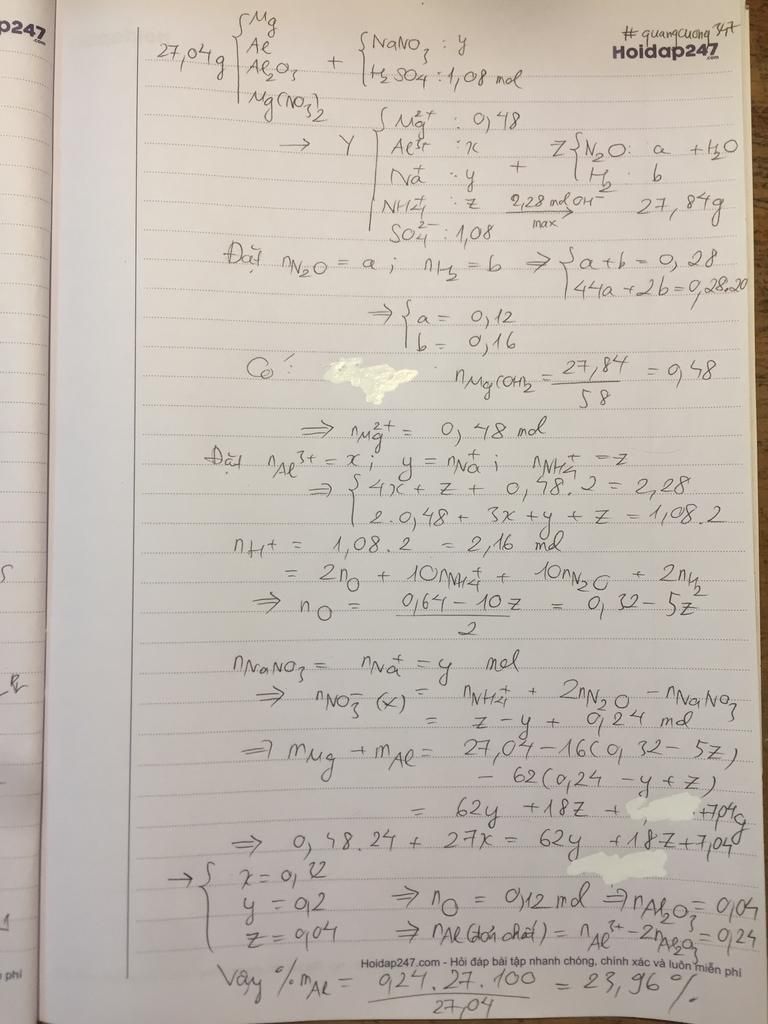 p247
.com
# quangcuong347
Hoidap247
.com
27,04g { Mg
Al
Al2O3
Mg(NO3)2
+ { NaNO3 : y
H2SO4 : 1,08 mol
→ Y { Mg2+ : 0,48
Al3+ : x
Na+ : y
NH4+ : z
SO42- : 1,08
+ Z { N2O : a + H2O
H2 : b
2,28 mol OH- → max 27,84g
Đặt nN2O = a ; nH2 = b ⇒ { a+b = 0,28
44a + 2b = 0,28.20
⇒ { a = 0,12
b = 0,16
Có : nMg(OH)2 = 27,84 / 58 = 0,48
⇒ nMg2+ = 0,48 mol
Đặt nAl3+ = x ; y = nNa+ ; nNH4+ = z
⇒ { 4x + z + 0,48.2 = 2,28
2.0,48 + 3x + y + z = 1,08.2
nH+ = 1,08.2 = 2,16 mol
= 2nO + 10nNH4+ + 10nN2O + 2nH2
⇒ nO = (0,64 - 10z) / 2 = 0,32 - 5z
nNaNO3 = nNa+ = y mol
⇒ nNO3- (X) = nNH4+ + 2nN2O - nNaNO3
= z - y + 0,24 mol
⇒ mMg + mAl = 27,04 - 16(0,32 - 5z)
- 62(0,24 - y + z)
= 62y + 18z + +7,04g
⇒ 0,48.24 + 27x = 62y + 18z + 7,04
→ { x = 0,32
y = 0,2
z = 0,04
⇒ nO = 0,12 mol ⇒ nAl2O3 = 0,04
⇒ nAl(đơn chất) = nAl3+ - 2nAl2O3 = 0,24
Hoidap247.com - Hỏi đáp bài tập nhanh chóng, chính xác và luôn miễn phí
phí
Vậy %mAl = 0,24.27.100 / 27,04 = 23,96 %